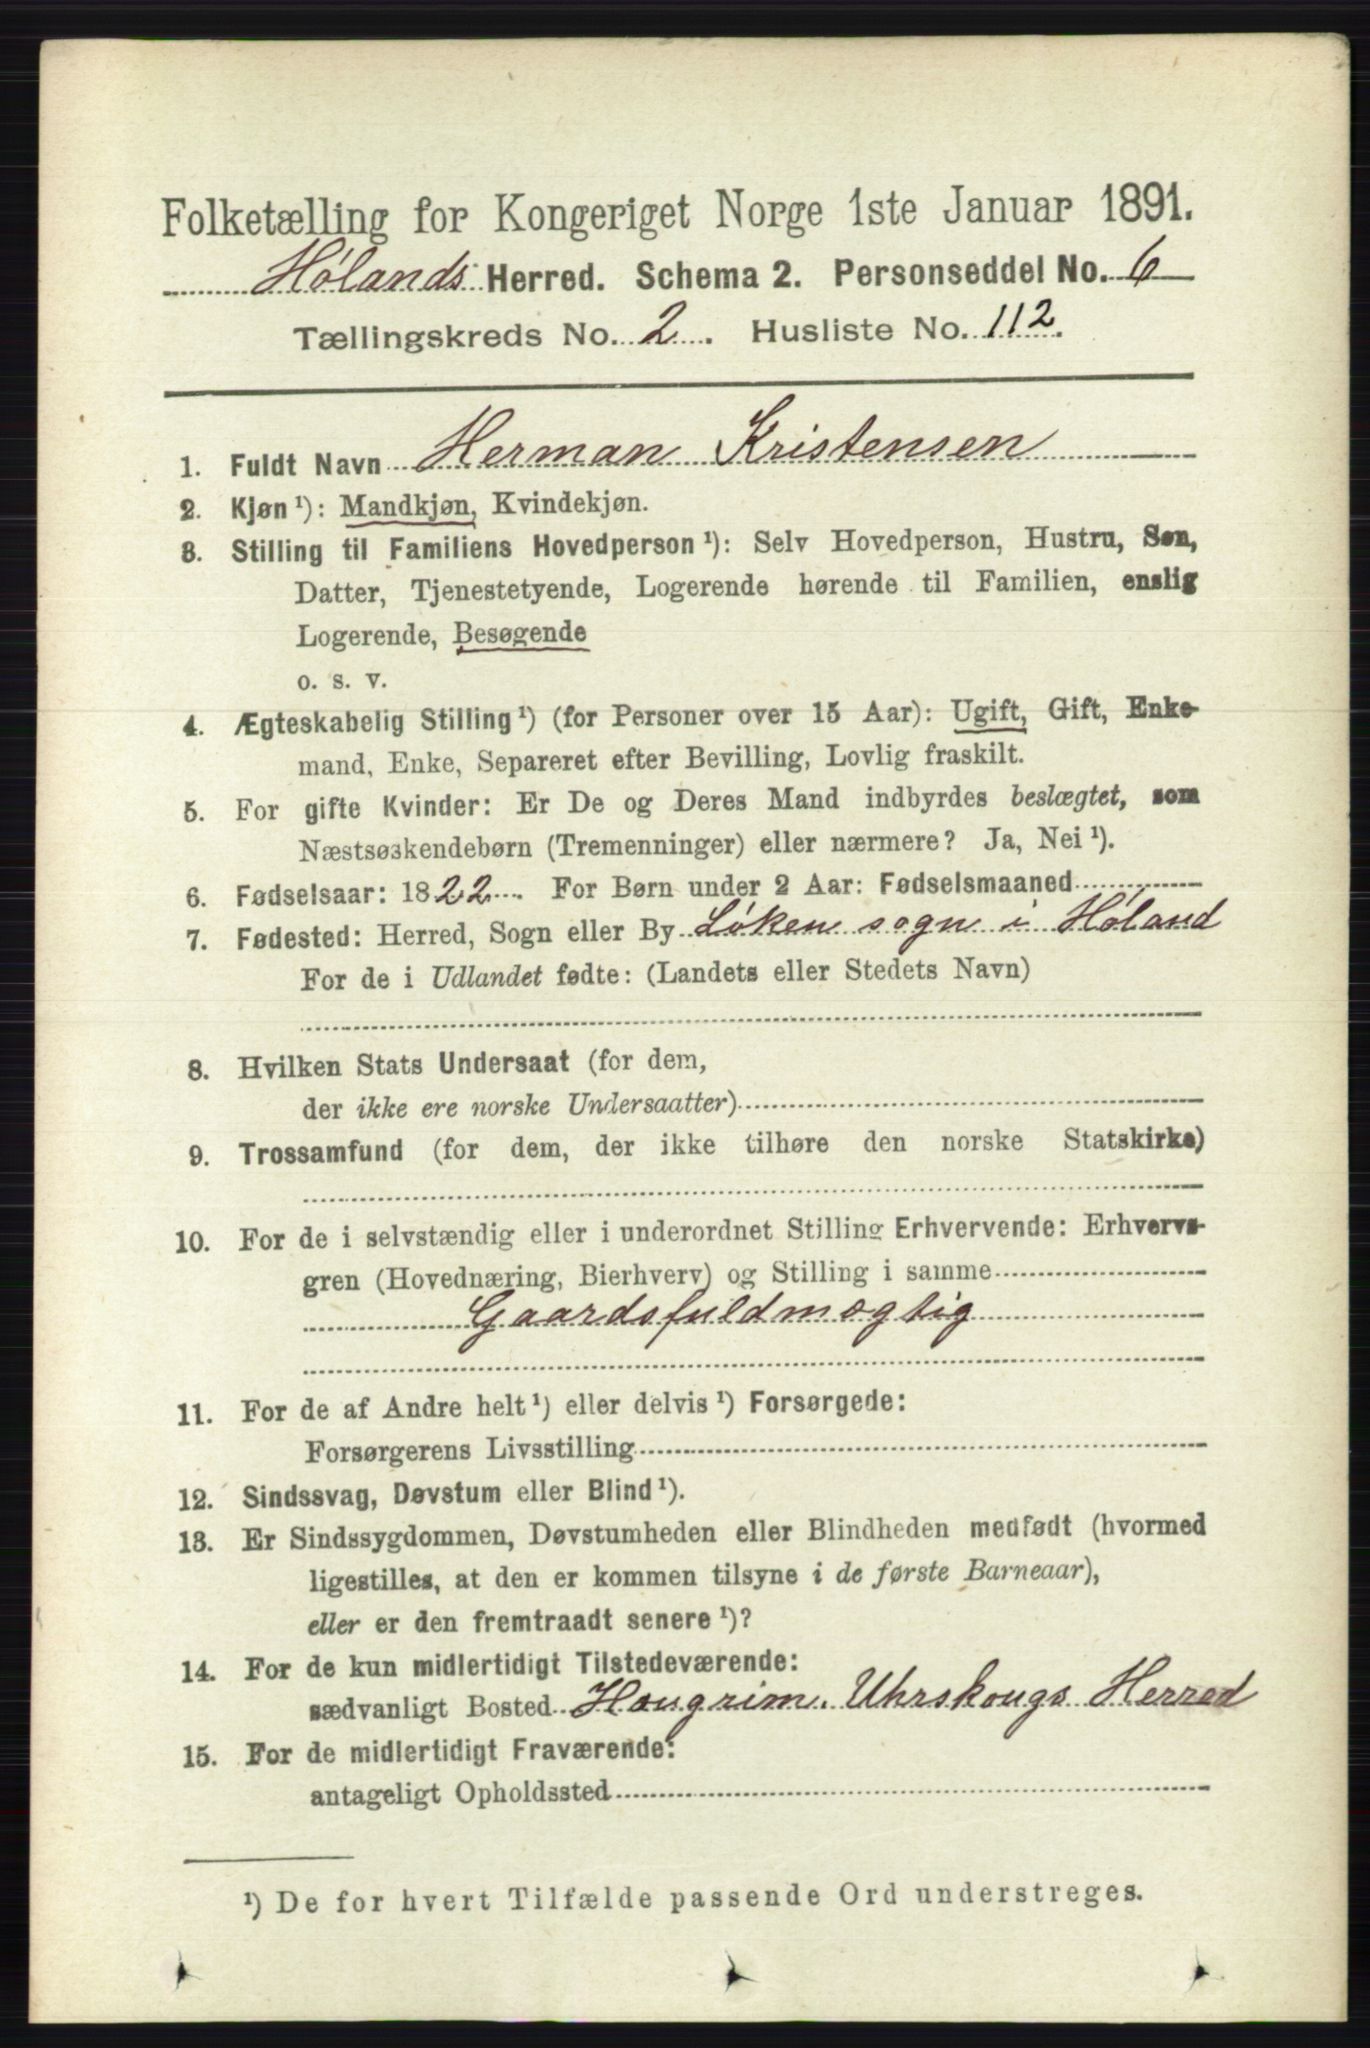 Folketælling for Kongeriget Norge 1ste Januar 1891.
Hølands Herred. Schema 2. Personseddel No. 6
Tællingskreds No. 2. Husliste No. 112.
1. Fuldt Navn Herman Kristensen
2. Kjøn¹): Mandkjøn, Kvindekjøn.
3. Stilling til Familiens Hovedperson¹): Selv Hovedperson, Hustru, Søn,
Datter, Tjenestetyende, Logerende hørende til Familien, enslig
Logerende, Besøgende
o. s. v.
4. Ægteskabelig Stilling¹) (for Personer over 15 Aar): Ugift, Gift, Enke-
mand, Enke, Separeret efter Bevilling, Lovlig fraskilt.
5. For gifte Kvinder: Er De og Deres Mand indbyrdes beslægtet, som
Næstsøskendebørn (Tremenninger) eller nærmere? Ja, Nei¹).
6. Fødselsaar: 1822. For Børn under 2 Aar: Fødselsmaaned
7. Fødested: Herred, Sogn eller By Løken sogn i Høland
For de i Udlandet fødte: (Landets eller Stedets Navn)
8. Hvilken Stats Undersaat (for dem,
der ikke ere norske Undersaatter)
9. Trossamfund (for dem, der ikke tilhøre den norske Statskirke)
10. For de i selvstændig eller i underordnet Stilling Erhvervende: Erhvervs-
gren (Hovednæring, Bierhverv) og Stilling i samme
Gaardsfuldmægtig
11. For de af Andre helt¹) eller delvis¹) Forsørgede:
Forsørgerens Livsstilling
12. Sindssvag, Døvstum eller Blind¹).
13. Er Sindssygdommen, Døvstumheden eller Blindheden medfødt (hvormed
ligestilles, at den er kommen tilsyne i de første Barneaar),
eller er den fremtraadt senere¹)?
14. For de kun midlertidigt Tilstedeværende:
sædvanligt Bosted Haugrim. Uhrskougs Herred
15. For de midlertidigt Fraværende:
antageligt Opholdssted
¹) De for hvert Tilfælde passende Ord understreges.